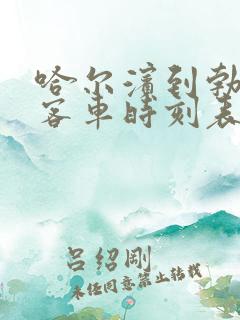 哈尔滨到勃
客车时刻表
吕绍刚
未经同意禁止转载